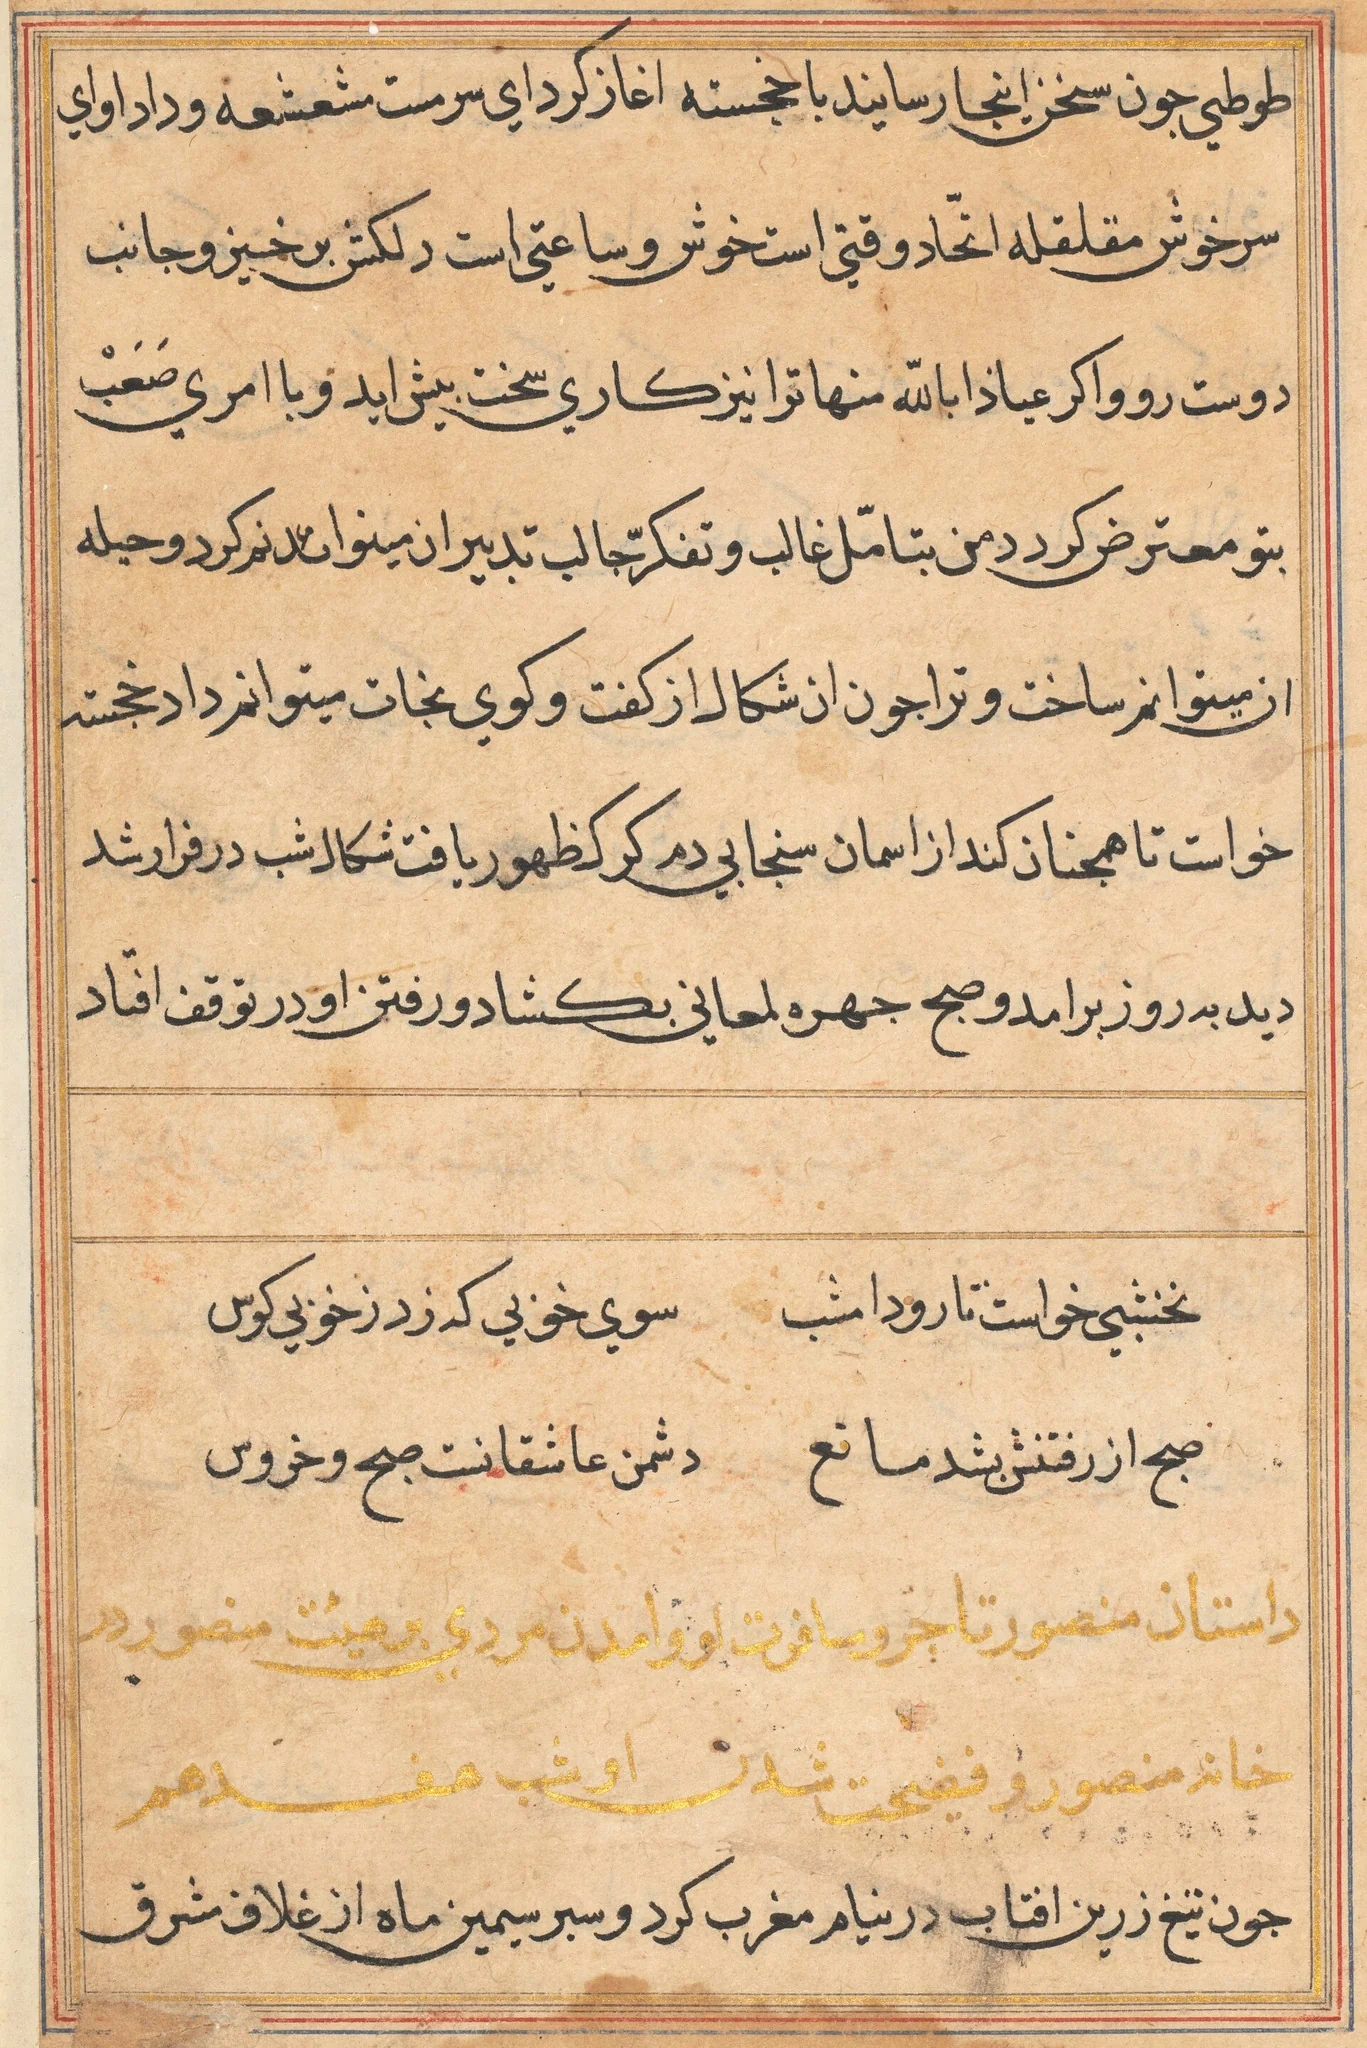 طوطي جون سخن اينجا رسانيد با خجسته اغاز كرد اي سرمست مشعشعه وداد واي
سرخوش مقلقله اتّحاد وقتي است خوش وساعتي است دلكش برخيز وجانب
دوست رو واكر عياذا بالله منها ترا نيز كاري سخت بيش ايد و با امري صَعَبْ
بتو معترض كردد من بتامّل غالب وتفكرّ جالب تدبير ان ميتوانم كرد وحيله
ان ميتوانم ساخت وترا جون ان شكال از كفت وكوي نجات ميتوانم داد خجسته
خواست تا همجنان كند از اسمان سنجابي دم كرك ظهور يافت شكال شب در فرار شد
ديد به روز برامد وصبح جهره لمعاني بكشاد ورفتن او در توقف افتاد
نخشبي خواست تا رود امشب سوي خوبي كه زد ز خوبي كوس
صبح از رفتنش بشد مانع دشمن عاشقانست صبح وخروس
داستان منصور تاجر ومسافرت او وامدن مردي بر هيئت منصور در
خانه منصور و فضيحت شدن او شب هفدهم
جون تيغ زرين افتاب در نيام مغرب كرد وسبر سيمين ماه از غلاف شرق